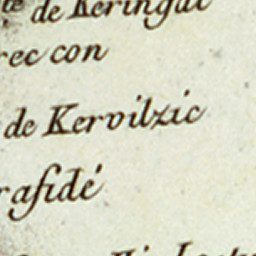 te de Keringal
rec con
de Kervilzic
rafidé